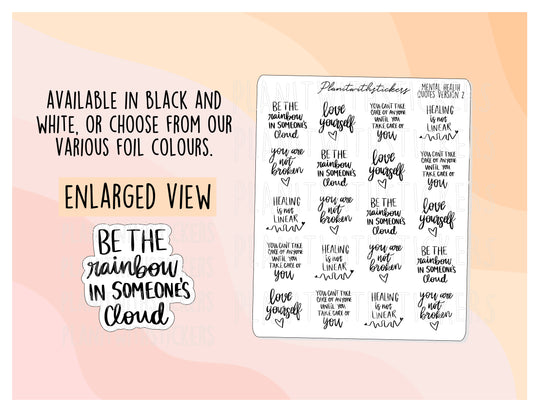 AVAILABLE IN BLACK AND
WHITE, OR CHOOSE FROM OUR
VARIOUS FOIL COLOURS.
ENLARGED VIEW
BE THE
rainbow
IN SOMEONE'S
Cloud
Planitwithstickers
MENTAL HEALTH
QUOTES VERSION 2
BE THE
rainbow
IN SOMEONE'S
Cloud
love
yourself
YOU CAN'T TAKE
CARE OF ANYONE
UNTIL YOU
TAKE CARE OF
you
HEALING
is not
LINEAR
you are
not
broken
BE THE
rainbow
IN SOMEONE'S
Cloud
love
yourself
YOU CAN'T TAKE
CARE OF ANYONE
UNTIL YOU
TAKE CARE OF
you
HEALING
is not
LINEAR
you are
not
broken
BE THE
rainbow
IN SOMEONE'S
Cloud
love
yourself
YOU CAN'T TAKE
CARE OF ANYONE
UNTIL YOU
TAKE CARE OF
you
HEALING
is not
LINEAR
you are
not
broken
BE THE
rainbow
IN SOMEONE'S
Cloud
love
yourself
YOU CAN'T TAKE
CARE OF ANYONE
UNTIL YOU
TAKE CARE OF
you
HEALING
is not
LINEAR
you are
not
broken